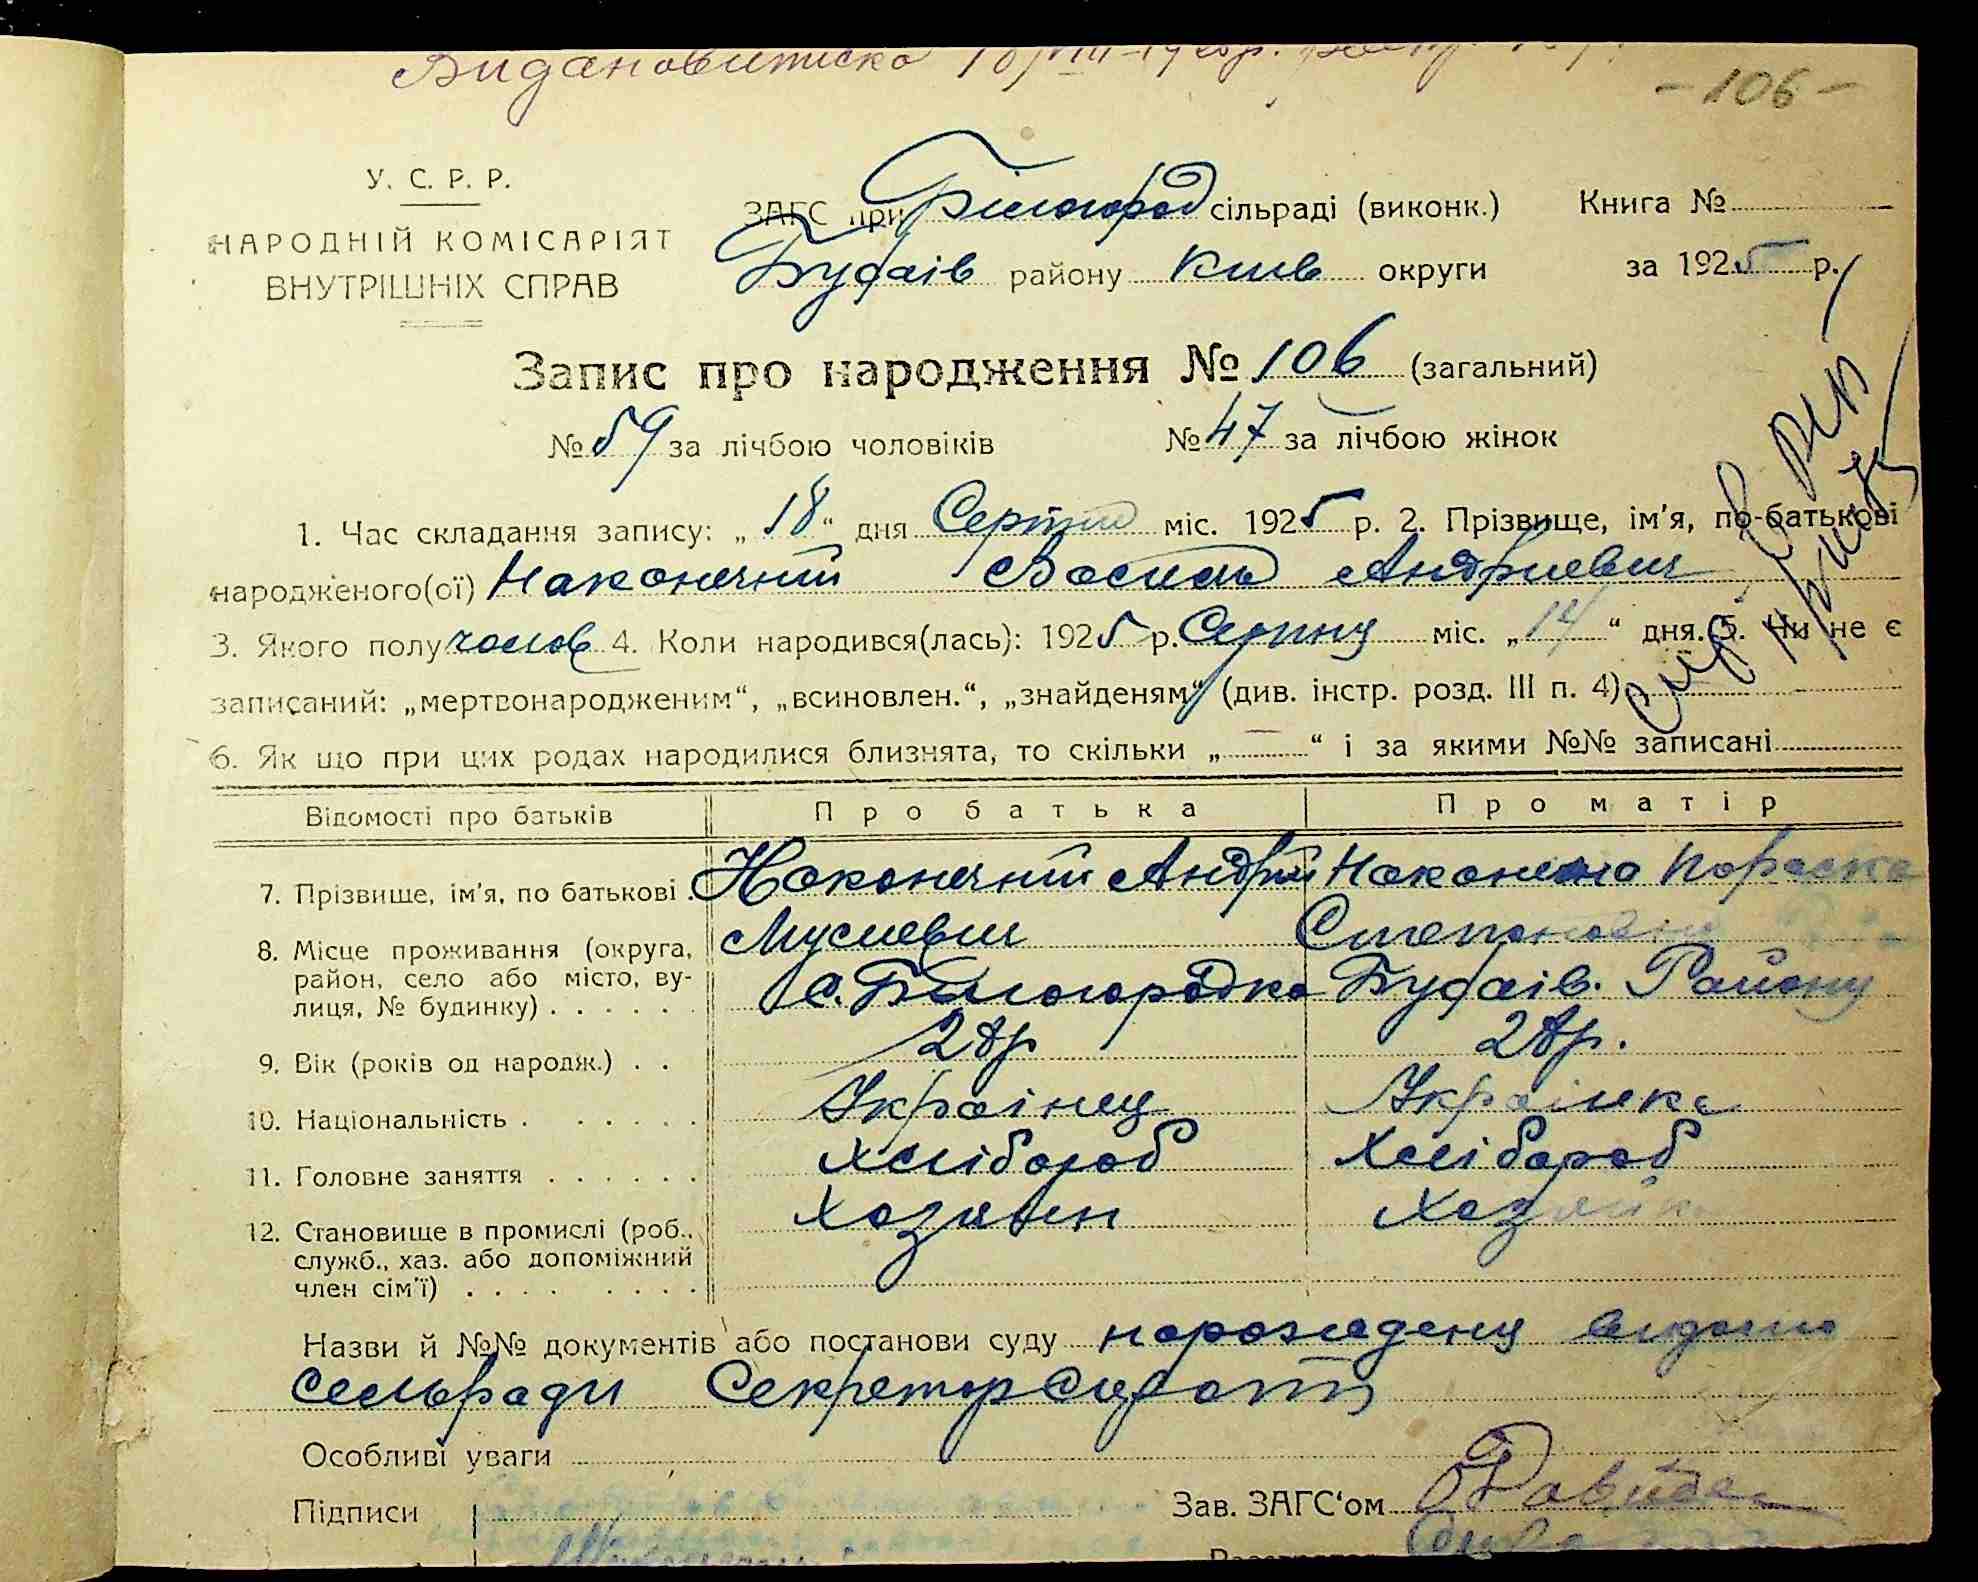 Видана виписка 18/VIII-1925р.
-106-
У. С. Р. Р.
НАРОДНІЙ КОМІСАРІЯТ
ВНУТРІШНІХ СПРАВ
ЗАГС при Білогород сільраді (виконк.) Книга №
Будаїв району Київ округи за 1925 р.
Запис про народження № 106 (загальний)
№ 59 за лічбою чоловіків № 47 за лічбою жінок
1. Час складання запису: „18“ дня Серпня міс. 1925 р. 2. Прізвище, ім'я, по-батькові
народженого(ої) Наконечний Василь Андриевич
3. Якого полу чолов 4. Коли народився(лась): 1925 р. Серпня міс. „14“ дня. 5. Чи не є
записаний: „мертвонародженим“, „всиновлен.“, „знайденям“ (див. інстр. розд. III п. 4)
6. Як що при цих родах народилися близнята, то скільки „—“ і за якими №№ записані
Відомості про батьків Про батька Про матір
7. Прізвище, ім'я, по батькові . Наконечний Андрій Наконечна Параска
Мусиевич Степановна
8. Місце проживання (округа,
район, село або місто, ву-
лиця, № будинку) . . . . . . с. Білогородка Будаїв. Району
9. Вік (років од народж.) . . 28р 28р.
10. Національність . . . . . . Українец Українка
11. Головне заняття . . . . . . Хлібороб Хлібороб
12. Становище в промислі (роб.,
служб., хаз. або допоміжний
член сім'ї) . . . . . . . . Хозяин Хозяйка
Назви й №№ документів або постанови суду нарождену видано
сельради Секретор
Особливі уваги
Підписи
Зав. ЗАГС‘ом